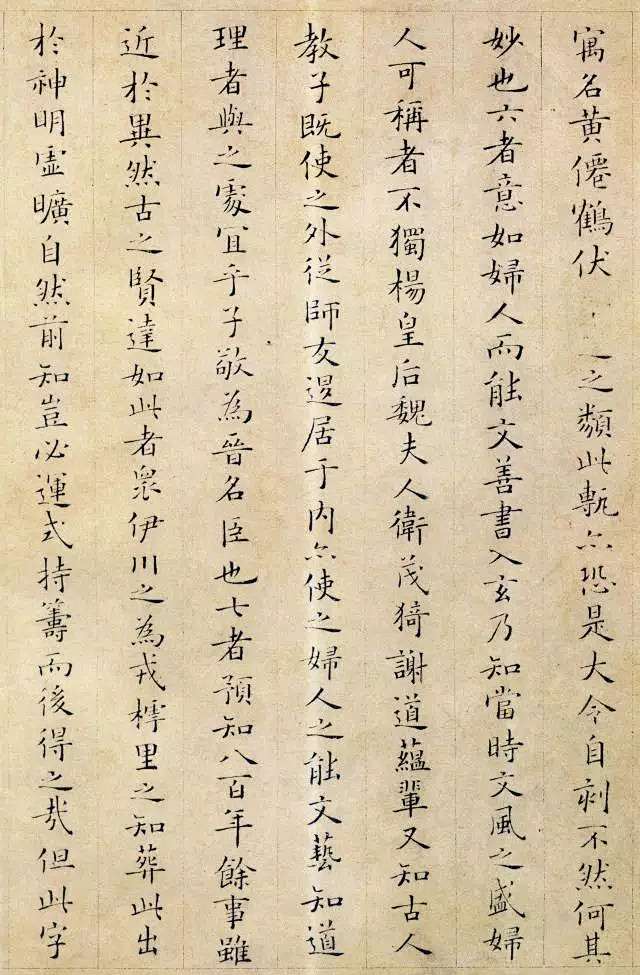 寓名黄僊鶴伏之類此甎亦恐是大令自刻不然何其
妙也六者意如婦人而能文善書入玄乃知當時文風之盛婦
人可稱者不獨楊皇后魏夫人衛茂猗謝道蘊輩又知古人
教子既使之外從師友退居于内亦使之婦人之能文藝知道
理者與之處宜乎子敬為晉名臣也七者預知八百年餘事雖
近於異然古之賢達如此者衆伊川之為戎樗里之知葬此出
於神明虚曠自然前知豈必運式持籌而後得之哉但此字